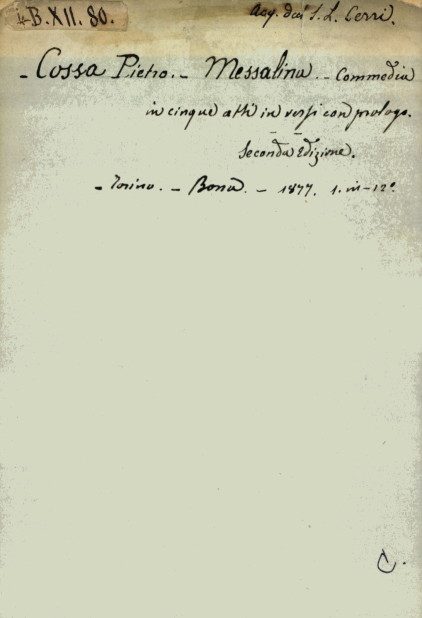 4-B.XII.80.
Acq. dai S. L. Cerri.
- Cossa Pietro. - Messalina. - Commedia
in cinque atti in versi con prologo.
Seconda Edizione.
- Torino. - Bona. - 1877. 1. in-12°
C.